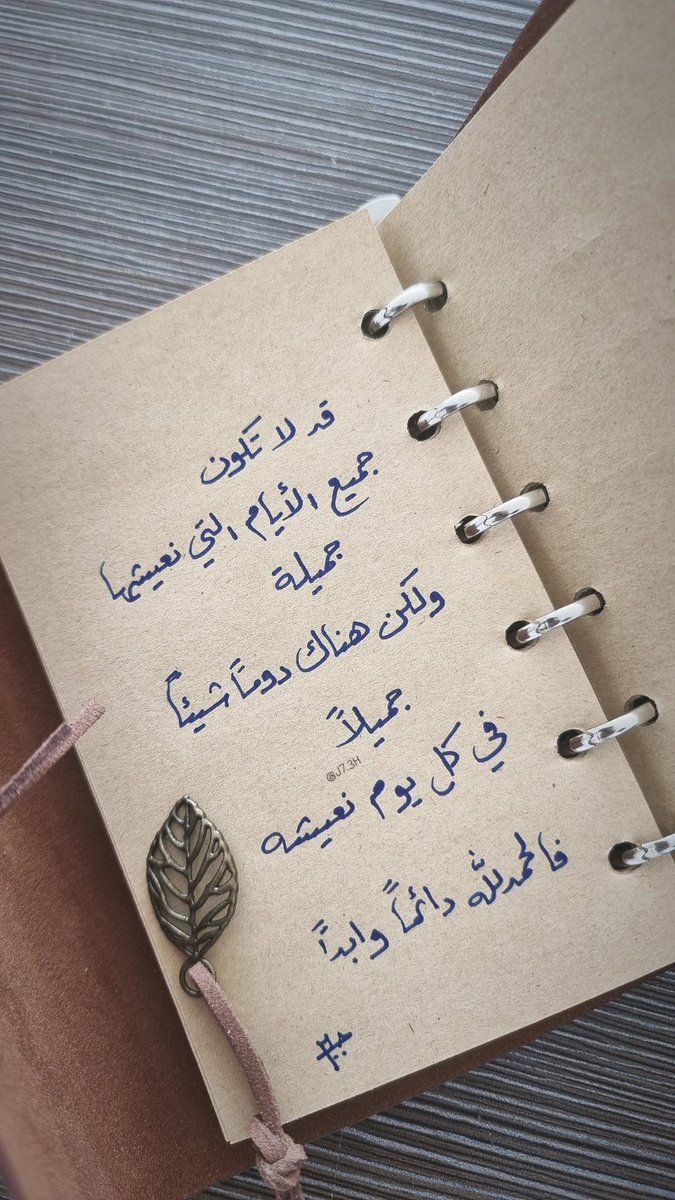 قد لا تكون
جميع الأيام التي نعيشها
جميلة
ولكن هناك دوماً شيئاً
جميلاً
@J7.3H
في كل يوم نعيشه
فالحمدلله دائماً وابداً